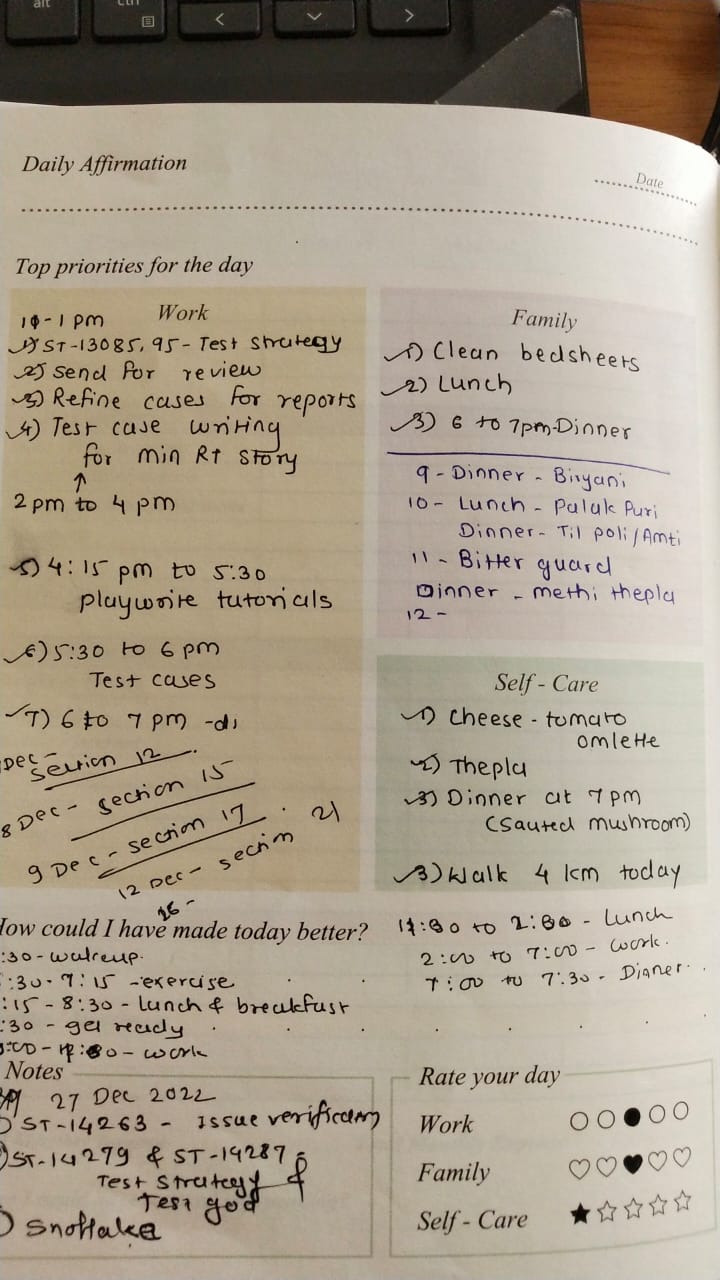 alt
ctrl
Daily Affirmation
Date
Top priorities for the day
Work
10-1 pm
1) ST-13085, 95 - Test Strategy
2) Send for review
3) Refine cases for reports
4) Test case writing
for min Rt story
2 pm to 4 pm
5) 4:15 pm to 5:30
playwrite tutorials
6) 5:30 to 6 pm
Test cases
7) 6 to 7 pm -
Dec - Section 12
8 Dec - section 15
9 Dec - section 17
12 Dec - section 21
Family
1) Clean bedsheets
2) Lunch
3) 6 to 7pm-Dinner
9 - Dinner - Biryani
10 - Lunch - Palak Puri
Dinner - Til poli/Amti
11 - Bitter guard
Dinner - methi thepla
12 -
Self - Care
1) Cheese - tomato
omlette
2) Thepla
3) Dinner at 7 pm
(Sauted mushroom)
3) Walk 4 km today
How could I have made today better?
:30 - wakeup.
:30 - 7:15 - exercise
:15 - 8:30 - lunch & breakfast
:30 - get ready
- work
to - Lunch
2:00 to 7:00 - work.
7:00 to 7:30 - Dinner.
Notes
27 Dec 2022
ST-14263 - Issue verification
ST-14279 & ST-14287
Test Strategy &
Test
Rate your day
Work
Family
Self - Care